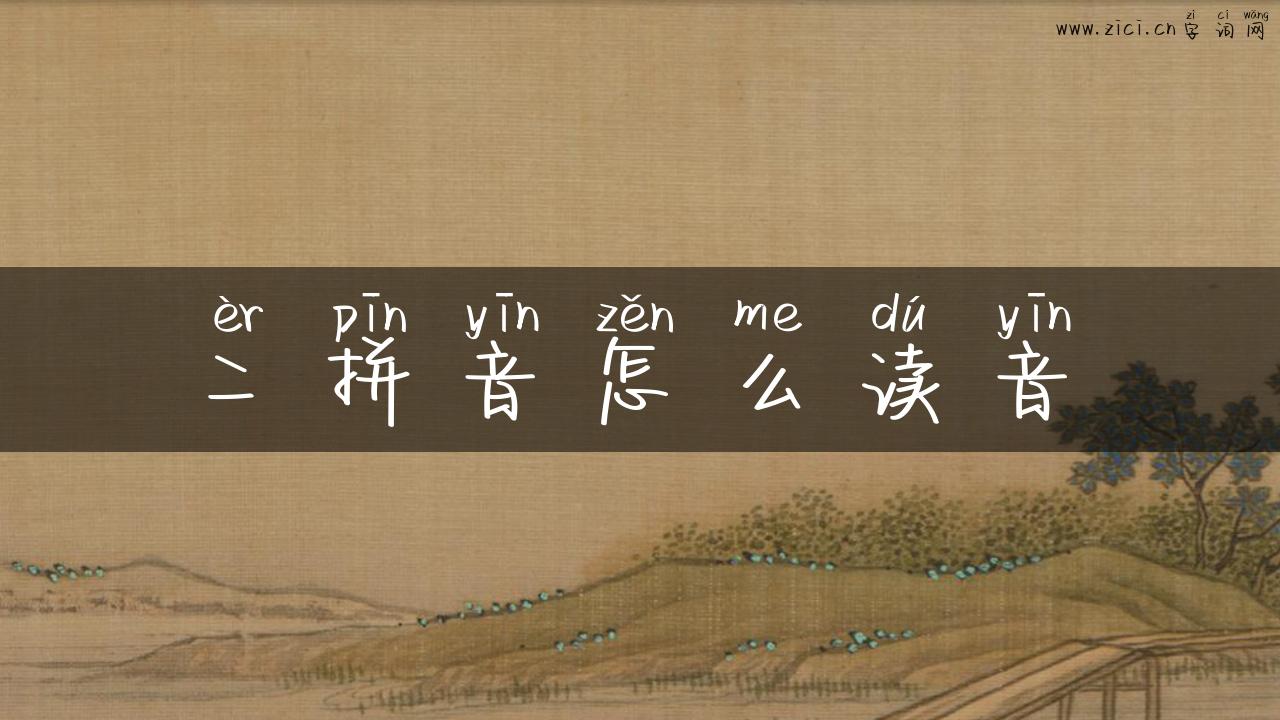 zì cí wǎng
www.zici.cn 字 词 网
èr pīn yīn zěn me dú yīn
二 拼 音 怎 么 读 音